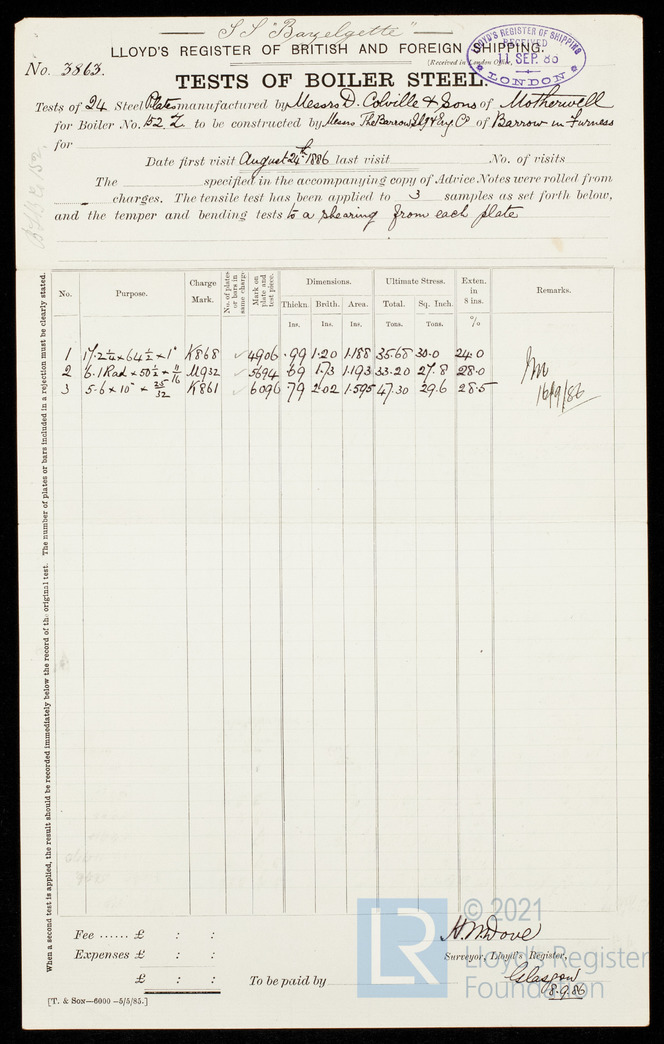 SS "Bazelgette"
LLOYD'S REGISTER OF BRITISH AND FOREIGN SHIPPING.
No. 3863.
(Received in London Office,
LLOYD'S REGISTER OF SHIPPING
RECEIVED
11 SEP. 86
LONDON
TESTS OF BOILER STEEL.
Tests of 24 Steel Plates manufactured by Messrs D. Colville & Sons of Motherwell
for Boiler No. 152.Z to be constructed by Messrs The Barrow Sbg & Eng Co of Barrow in Furness
for
Date first visit August 24th 1886 last visit No. of visits
The specified in the accompanying copy of Advice Notes were rolled from
charges. The tensile test has been applied to 3 samples as set forth below,
and the temper and bending tests to a shearing from each plate
No. Purpose. Charge Mark. No. of plates or bars in same charge Mark on plate and test piece. Dimensions. Ultimate Stress. Exten. in 8 ins. Remarks.
Thickn. Brdth. Area. Total. Sq. Inch.
Ins. Ins. Ins. Tons. Tons. %
1 17.2 1/4 x 64 1/2 x 1" K868 ✓ 4906 .99 1.20 1.188 35.68 30.0 24.0
2 6.1 Rad x 50 1/2 x 11/16 M932 ✓ 5694 .69 1.73 1.193 33.20 27.8 28.0
3 5.6 x 10" x 25/32 K861 ✓ 6096 .79 2.02 1.595 47.30 29.6 28.5
16/9/86
When a second test is applied, the result should be recorded immediately below the record of the original test. The number of plates or bars included in a rejection must be clearly stated.
Fee ...... £ : :
Expenses £ : :
£ : :
To be paid by
H. M. Dove
Surveyor, Lloyd's Register,
Glasgow
8.9.86
[T. & Son—6000 —5/5/85.]
LR
© 2021
Lloyd's Register
Foundation